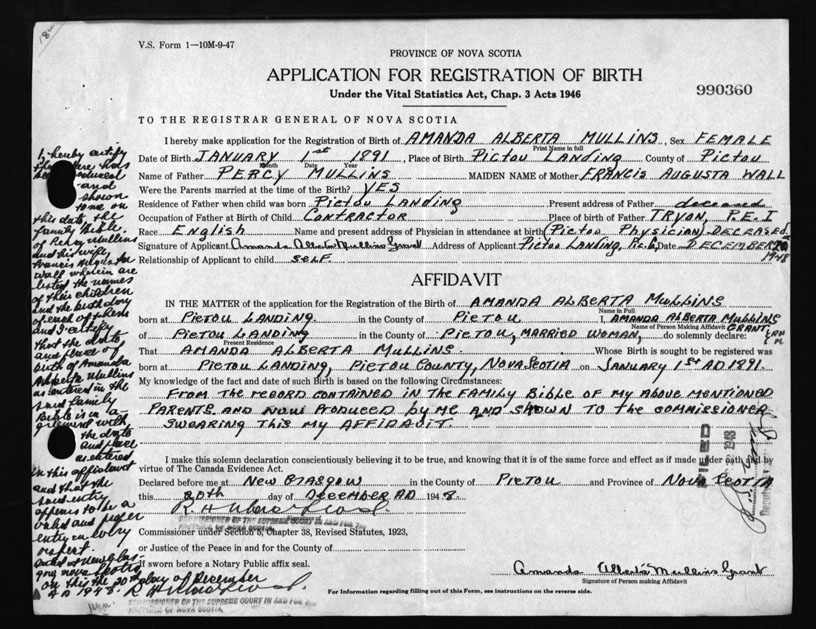 18
V.S. Form 1—10M-9-47
PROVINCE OF NOVA SCOTIA
APPLICATION FOR REGISTRATION OF BIRTH
990360
Under the Vital Statistics Act, Chap. 3 Acts 1946
TO THE REGISTRAR GENERAL OF NOVA SCOTIA
I hereby make application for the Registration of Birth of AMANDA ALBERTA MULLINS, Sex FEMALE
Print Name in full
Date of Birth JANUARY 1st 1891, Place of Birth PICTOU LANDING County of PICTOU
Month Date Year
Name of Father PERCY MULLINS MAIDEN NAME of Mother FRANCIS AUGUSTA WALL
Were the Parents married at the time of the Birth? YES
Residence of Father when child was born PICTOU LANDING Present address of Father deceased
Occupation of Father at Birth of Child CONTRACTOR Place of birth of Father TRYON, P.E.I
Race English Name and present address of Physician in attendance at birth (PICTOU PHYSICIAN) DECEASED
Signature of Applicant Amanda Alberta Mullins Grant Address of Applicant PICTOU LANDING, Date DECEMBER 20
1948
Relationship of Applicant to child SELF.
AFFIDAVIT
IN THE MATTER of the application for the Registration of the Birth of AMANDA ALBERTA MULLINS
Name in Full
born at PICTOU LANDING in the County of PICTOU I, AMANDA ALBERTA MULLINS
Name of Person Making Affidavit GRANT,
of PICTOU LANDING in the County of PICTOU, MARRIED WOMAN, do solemnly declare:
Present Residence
That AMANDA ALBERTA MULLINS Whose Birth is sought to be registered was
born at PICTOU LANDING, PICTOU COUNTY, NOVA SCOTIA on JANUARY 1ST AD 1891.
My knowledge of the fact and date of such Birth is based on the following Circumstances:
FROM THE RECORD CONTAINED IN THE FAMILY BIBLE OF MY ABOVE MENTIONED
PARENTS AND NOW PRODUCED BY ME AND SHOWN TO THE COMMISSIONER
SWEARING THIS MY AFFIDAVIT.
I make this solemn declaration conscientiously believing it to be true, and knowing that it is of the same force and effect as if made under oath and by
virtue of The Canada Evidence Act.
Declared before me at NEW GLASGOW in the County of PICTOU and Province of NOVA SCOTIA
this 20th day of DECEMBER AD 1948.
COMMISSIONER OF THE SUPREME COURT IN AND FOR THE
PROVINCE OF NOVA SCOTIA
Commissioner under Section 5, Chapter 38, Revised Statutes, 1923,
or Justice of the Peace in and for the County of
If sworn before a Notary Public affix seal.
Amanda Alberta Mullins Grant
Signature of Person making Affidavit
For Information regarding filling out of this Form, see instructions on the reverse side.
FILED
1948
I hereby certify
that there has
been produced
and
shown
to me on
this date, the
family Bible
of Percy Mullins
and his wife,
Francis Augusta
Wall wherein are
listed the names
of their children
and the birth day
of each of them
and I certify
that the date
and place of
birth of Amanda
Alberta Mullins
as entered in the
said family
Bible is in a-
greement with
the date
and place
as entered
in this affidavit
and that the
said entry
appears to be a
valid and proper
entry in every
respect.
Dated at New Glas-
gow Nova Scotia
on this the 20th day of December
A D 1948.
COMMISSIONER OF THE SUPREME COURT IN AND FOR THE
PROVINCE OF NOVA SCOTIA